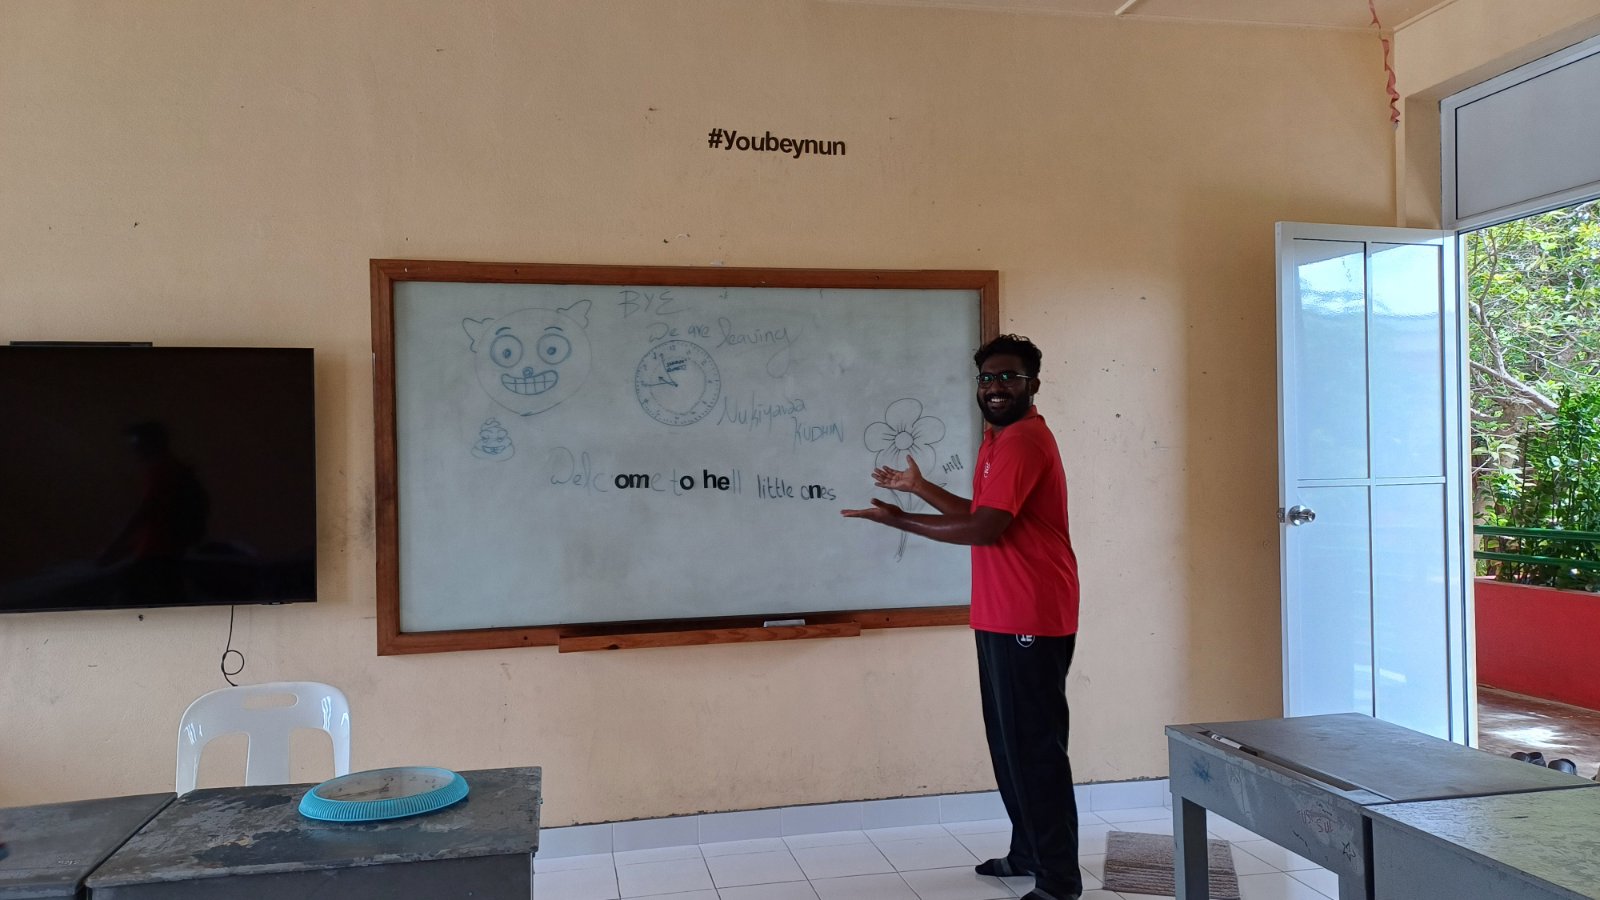 #Youbeynun
BYE
We are leaving
Nukiyavaa
KUDHIN
Welcome to hell little ones
Hi!!